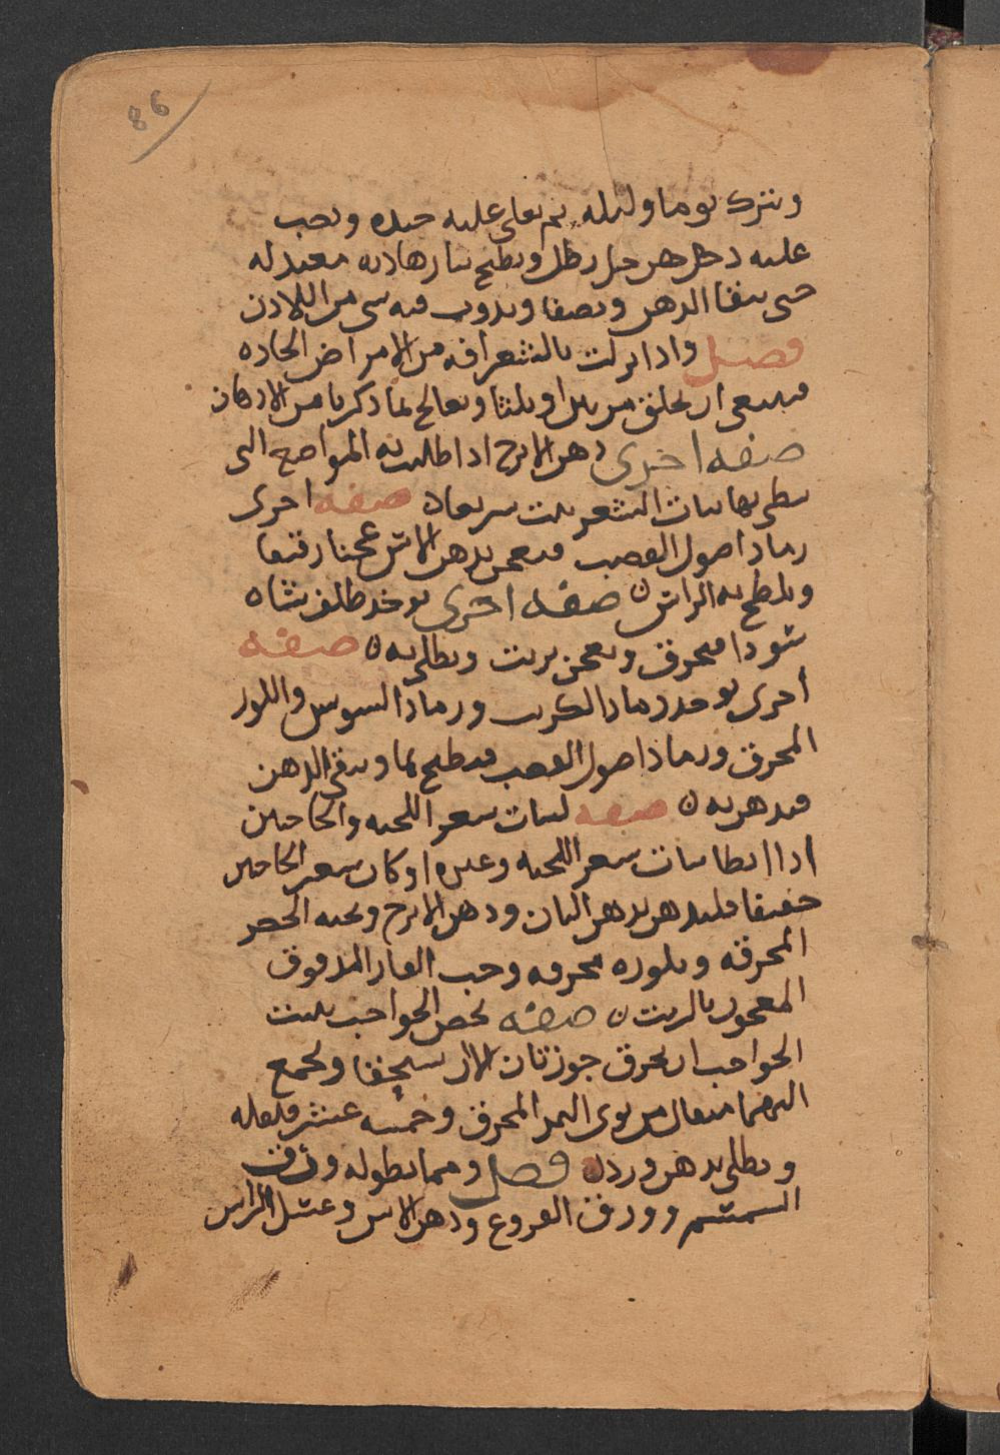 86
ويترك يوما وليله ثم يغلى عليه جيدا ويصب
عليه دهن حل رطل ويطبخ بنار هاديه معتدله
حتى يبقا الدهن ويصفا ويذوب فيه شى من اللادن
فصل واذا نزلت بالشعر افه من الامراض الحاده
فينبغى ان يحلق مرتين او ثلثا ويعالج بما ذكرنا من الادهان
صفه اخرى دهن الاترج اذا طليت به المواضع التى
يبطى بها نبات الشعر نبت سريعا ن صفه اخرى
رماد اصول القصب فيعجن بدهن الاس عجنا رقيقا
ويلطخ به الراس ن صفه اخرى يوخذ ظلف شاه
سودا فيحرق ويعجن بزيت ويطلى به ن صفه
اخرى يوخذ رماد الكرنب ورماد السوس واللوز
المحرق ورماد اصول القصب فيطبخ بما ويبقى الدهن
فيدهن به ن صفه لنبات شعر اللحيه والحاجبين
اذا ابطا نبات شعر اللحيه وغيره او كان شعر الحاجبين
خفيفا فليدهن بدهن البان ودهن الاترج ولحيه
المحرقه وبلوره محرقه وحب الغار المدقوق
المعجون بالزيت ن صفه تخص الحواجب ينبت
الحواجب ان يحرق جوزتان الان يسحقا ويجمع
اليهما مثقال من نوى التمر المحرق وخمسه عشر فلفله
ويطلى بدهن ورد ن فصل ومما يطوله ورق
السمسم وورق القروع ودهن الاس وغسل الراس